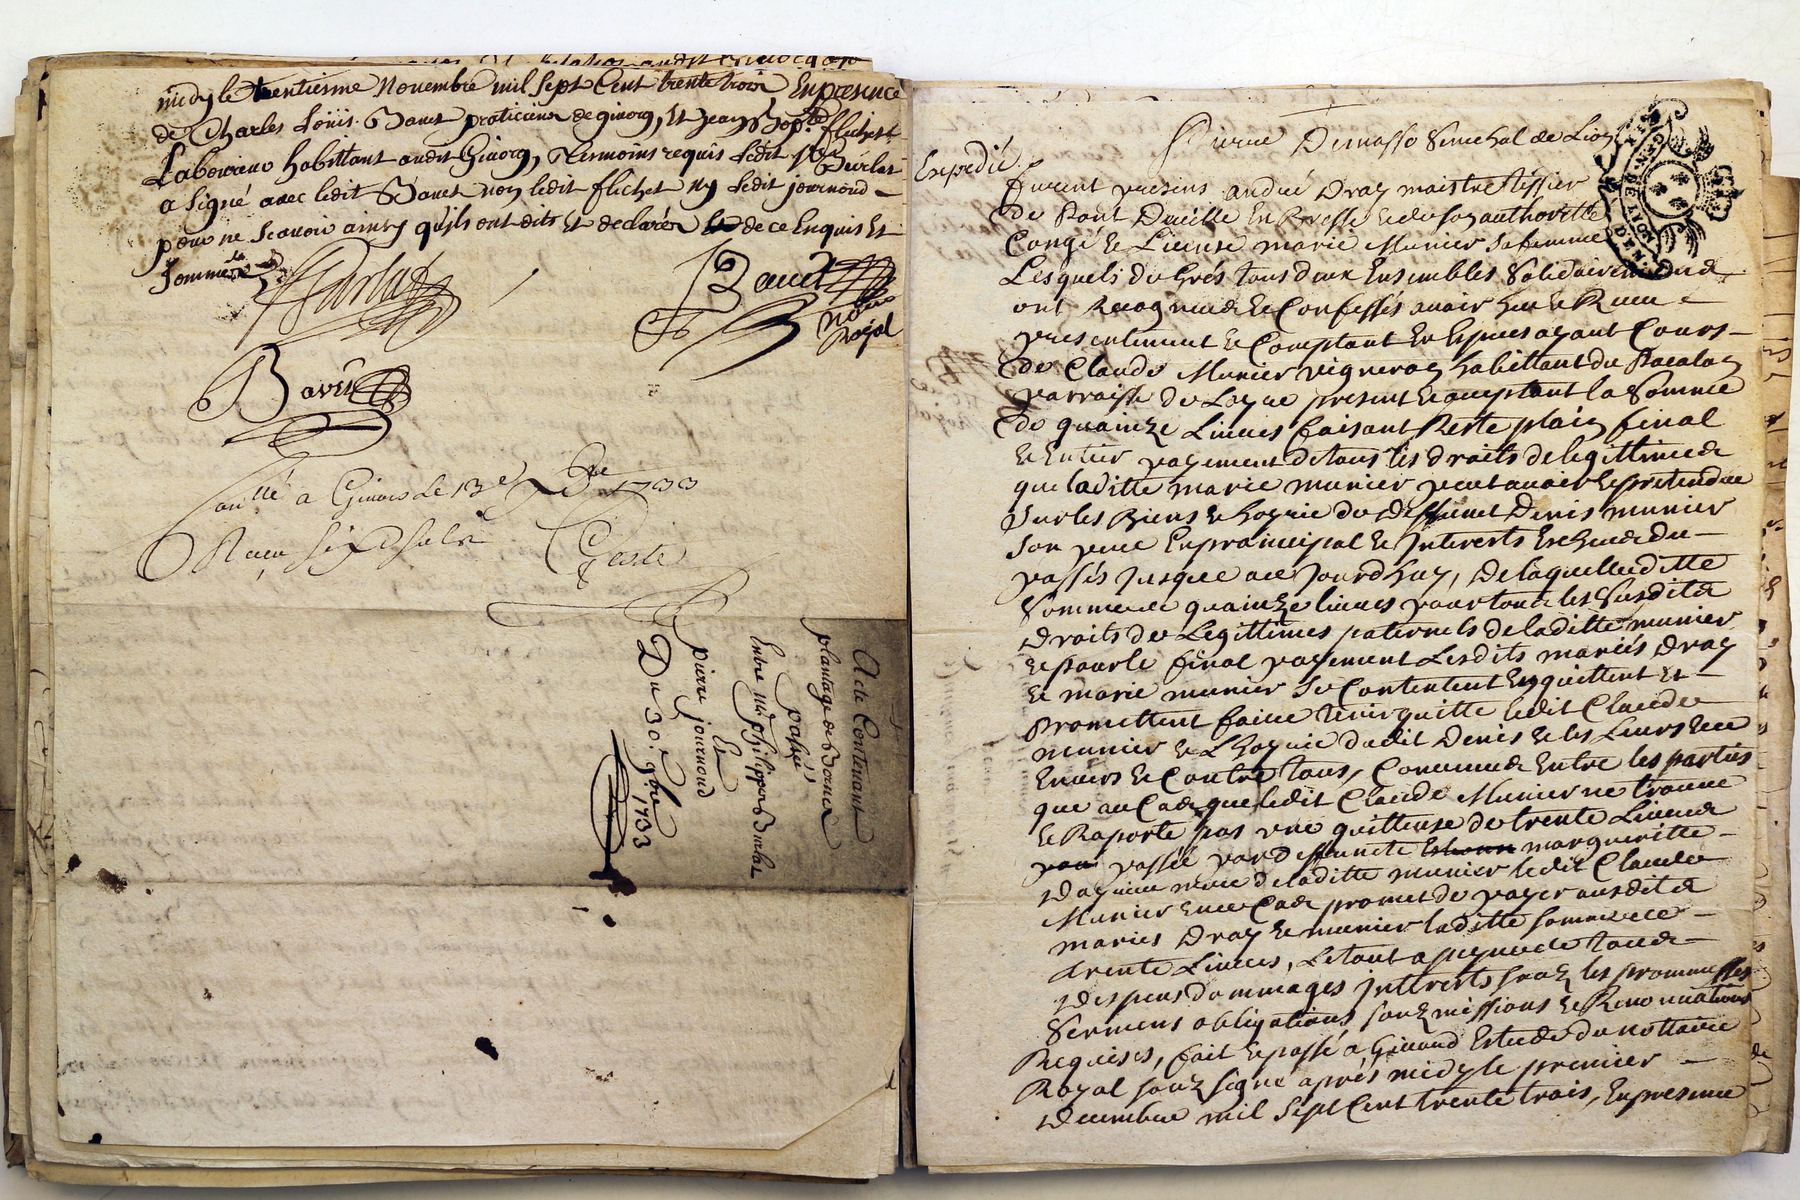 midy le trentiesme Novembre mil sept Cent trente trois, En presence
de Charles Loüis Bauet praticien de givors, Et Jean Bapte flichet
Laboureur habittant audit Givors, tesmoins requis ledit Sr Burlat
a signé avec ledit Bauet non ledit flichet ny ledit journoud
pour ne scavoir ainsy qu'ils ont dits Et declarés de ce Enquis Et
Sommés
Burlat
Bauet
No.re Royal
Bavet
Con.llé a Givors le 13e Xbre 1733
Receu six s
Geste
Acte Contenant
plantage de Bornes
passé
Entre mr philippes Burlat
Et
pierre journoud
Du 30e 9bre 1733
Expedié
Pierre Demasso Senechal de Lion
furent presens andré Dray maistre tissier
de Pont Dueille En Bresse et de son authoritté
Congé Et License marie Munier sa femme
Lesquels de Grés tous deux Ensembles Solidairement
ont Recogneu et Confessés avoir heu et Receu
presentement et Comptant En Especes ayant Cours
de Claude Munier vigneron habittant du
parroisse de Loyre present Et acceptant la Somme
de quainze Livres faisant Reste plain final
et Entier payement de tous les droits de legittime
que laditte marie munier peut avoir Et pretendre
sur les Biens et hoyrie de deffunct Denis munier
son pere En principal et Interests Escheus du
passés jusque au jourdhuy, de laquelle ditte
Somme de quainze livres pour tous les susdits
droits de Legittimes paternels de laditte munier
et pour le final payement Lesdits mariés Dray
et marie munier se Contentent En quittent Et
Promettent faire tenir quitte ledit Claude
munier et L'hoyrie dudit Denis et les Leurs
Envers et Contre tous, Convenu Entre les parties
que au Cas que ledit Claude Munier ne trouve
et Raporte pas une quittance de trente Livres
passée par deffuncte margueritte
mere de laditte munier ledit Claude
Munier En ce Cas promet de payer ausdits
mariés Dray et munier laditte somme de
trente Livres, Le tout a peyne de tous
despens dommages Interests souz les prommesses
Sermens obligations souzmissions et Renonciations
Requises, fait et passé a Givord Estude du nottaire
Royal souz signé aprés midy le premier
decembre mil Sept Cent trente trois, En presence